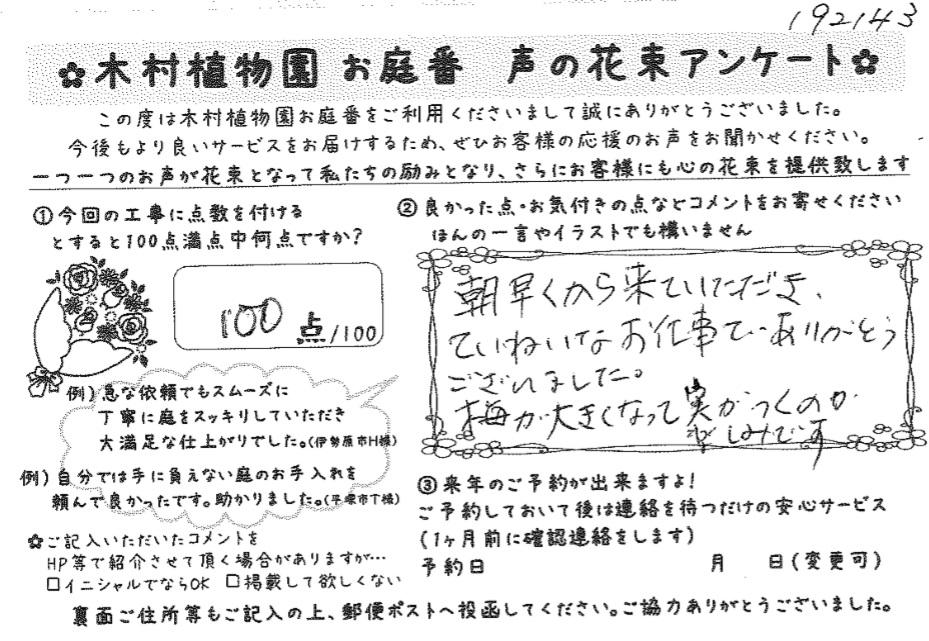 192143
✿木村植物園 お庭番 声の花束アンケート✿
この度は木村植物園お庭番をご利用くださいまして誠にありがとうございました。
今後もより良いサービスをお届けするため、ぜひお客様の応援のお声をお聞かせください。
一つ一つのお声が花束となって私たちの励みとなり、さらにお客様にも心の花束を提供致します
①今回の工事に点数を付ける
とすると100点満点中何点ですか?
100 点/100
例)急な依頼でもスムーズに
丁寧に庭をスッキリしていただき
大満足な仕上がりでした。(伊勢原市H様)
例)自分では手に負えない庭のお手入れを
頼んで良かったです。助かりました。(平塚市T様)
✿ご記入いただいたコメントを
HP等で紹介させて頂く場合がありますが…
□イニシャルでならOK □掲載して欲しくない
②良かった点・お気付きの点などコメントをお寄せください
ほんの一言やイラストでも構いません
朝早くから来ていただき、
ていねいなお仕事で、ありがとう
ございました。
梅が大きくなって実がつくのが
楽しみです
③来年のご予約が出来ますよ!
ご予約しておいて後は連絡を待つだけの安心サービス
(1ヶ月前に確認連絡をします)
予約日 月 日(変更可)
裏面ご住所等もご記入の上、郵便ポストへ投函してください。ご協力ありがとうございました。